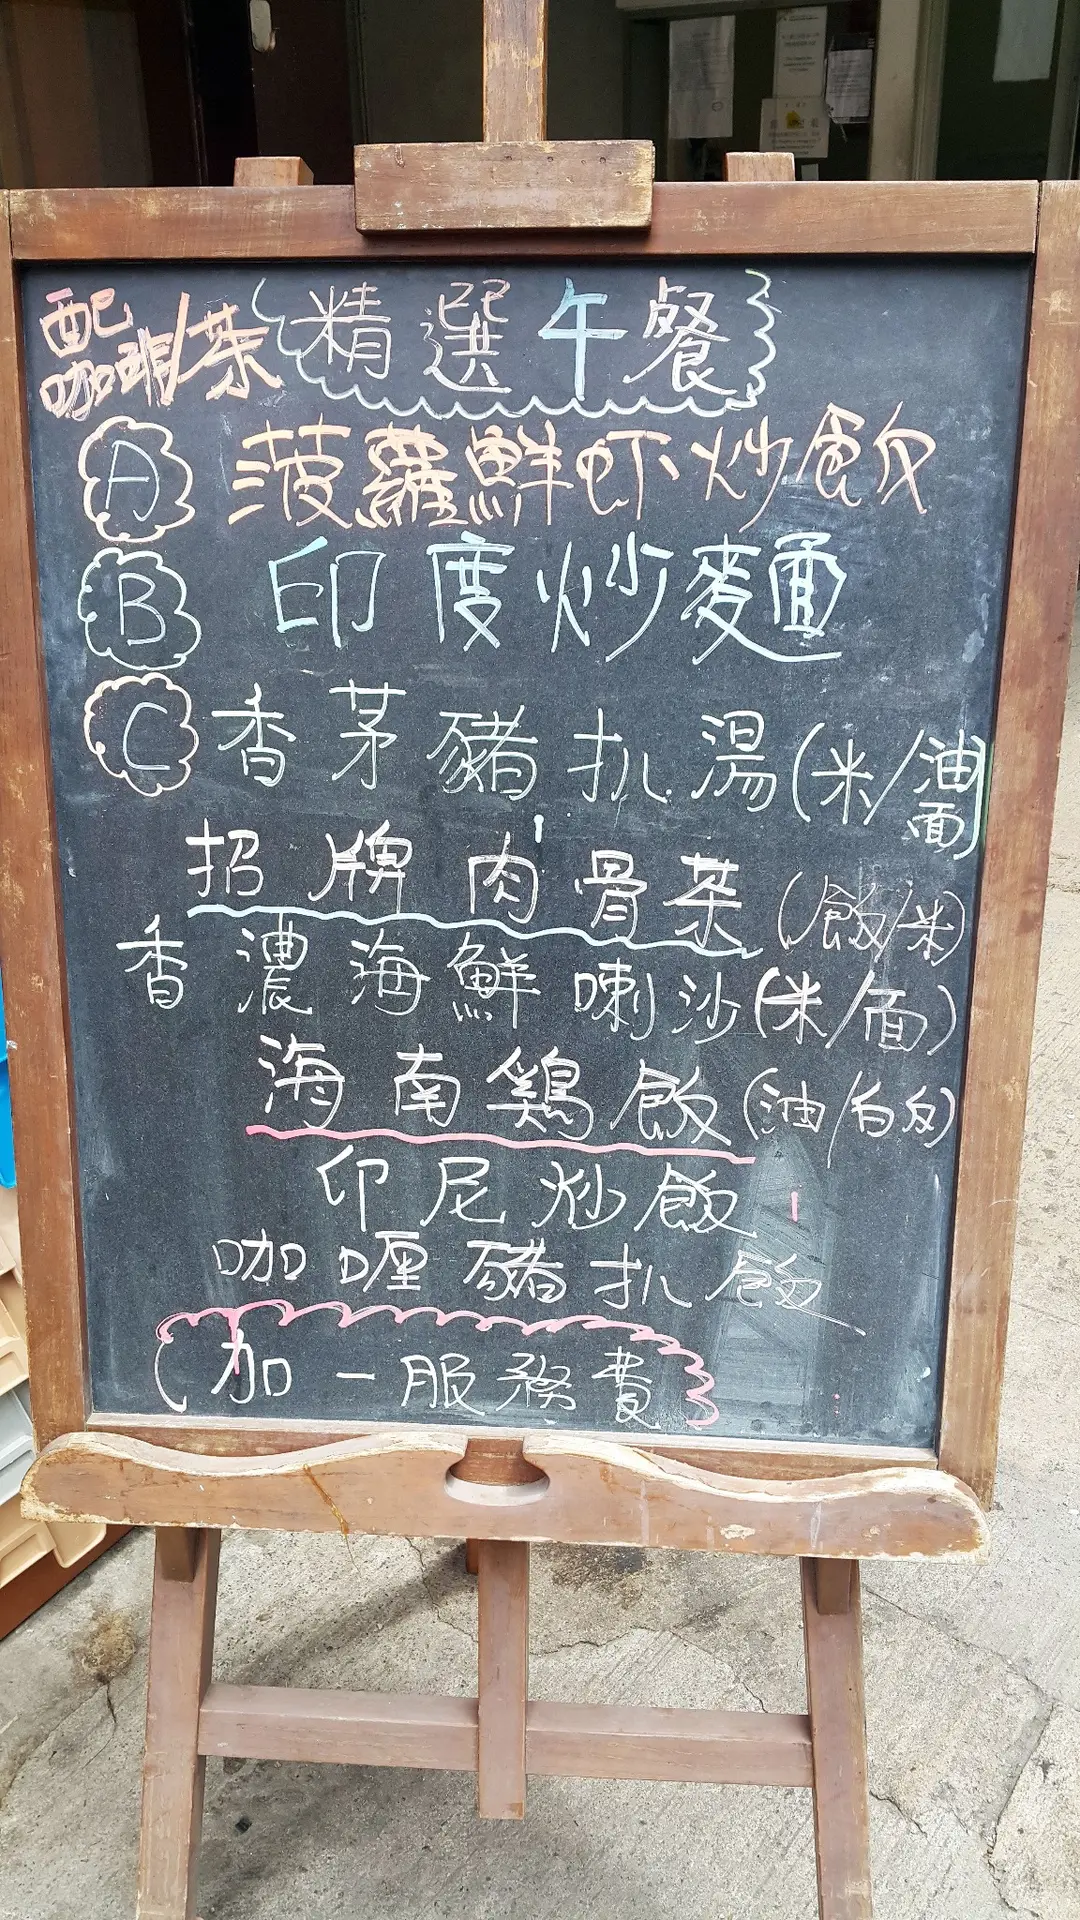 配
咖啡/茶
精選午餐
A 菠蘿鮮虾炒飯
B 印度炒麵
C 香茅豬扒湯(米/油面)
招牌肉骨茶(飯/米)
香濃海鮮喇沙(米/面)
海南鶏飯(油/白飯)
印尼炒飯
咖喱豬扒飯
(加一服務費